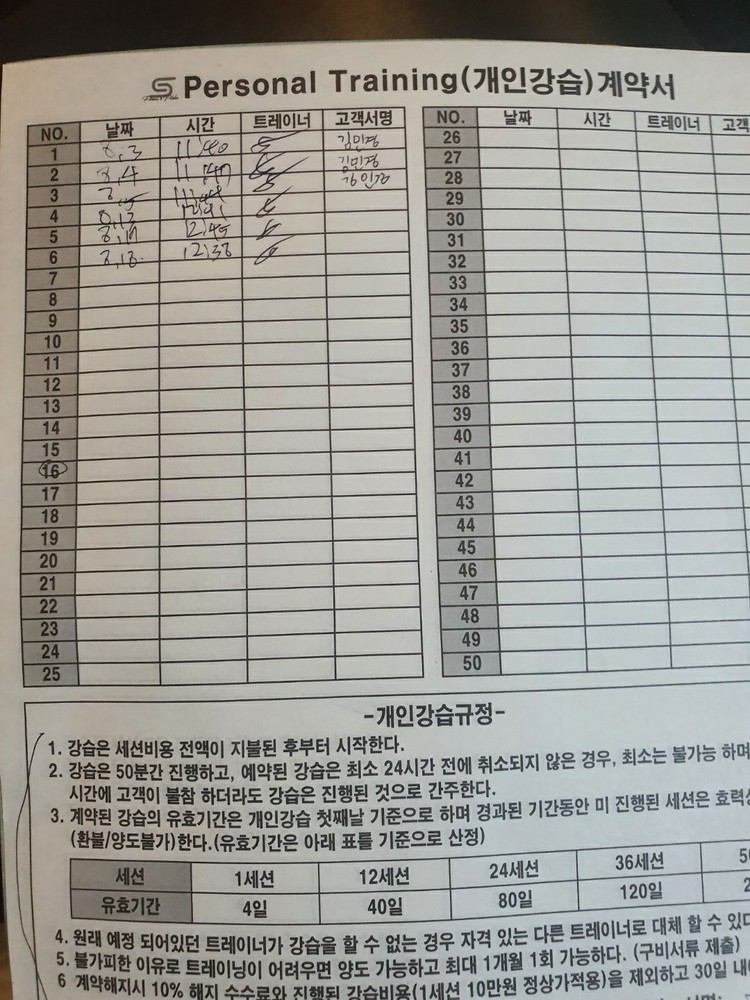 Personal Training(개인강습)계약서
NO. 날짜 시간 트레이너 고객서명
1 8,3 11:40 김민경
2 8,4 11:47 김민경
3
4 8,12
5 8,17 12:45
6 8,18 12:38
7
8
9
10
11
12
13
14
15
16
17
18
19
20
21
22
23
24
25
NO. 날짜 시간 트레이너 고객
26
27
28
29
30
31
32
33
34
35
36
37
38
39
40
41
42
43
44
45
46
47
48
49
50
-개인강습규정-
1. 강습은 세션비용 전액이 지불된 후부터 시작한다.
2. 강습은 50분간 진행하고, 예약된 강습은 최소 24시간 전에 취소되지 않은 경우, 최소는 불가능 하며
시간에 고객이 불참 하더라도 강습은 진행된 것으로 간주한다.
3. 계약된 강습의 유효기간은 개인강습 첫째날 기준으로 하며 경과된 기간동안 미 진행된 세션은 효력
(환불/양도불가)한다.(유효기간은 아래 표를 기준으로 산정)
세션 1세션 12세션 24세션 36세션
유효기간 4일 40일 80일 120일
4. 원래 예정 되어있던 트레이너가 강습을 할 수 없는 경우 자격 있는 다른 트레이너로 대체 할 수 있
5. 불가피한 이유로 트레이닝이 어려우면 양도 가능하고 최대 1개월 1회 가능하다. (구비서류 제출)
6 계약해지시 10% 해지 수수료와 진행된 강습비용(1세션 10만원 정상가적용)을 제외하고 30일 내